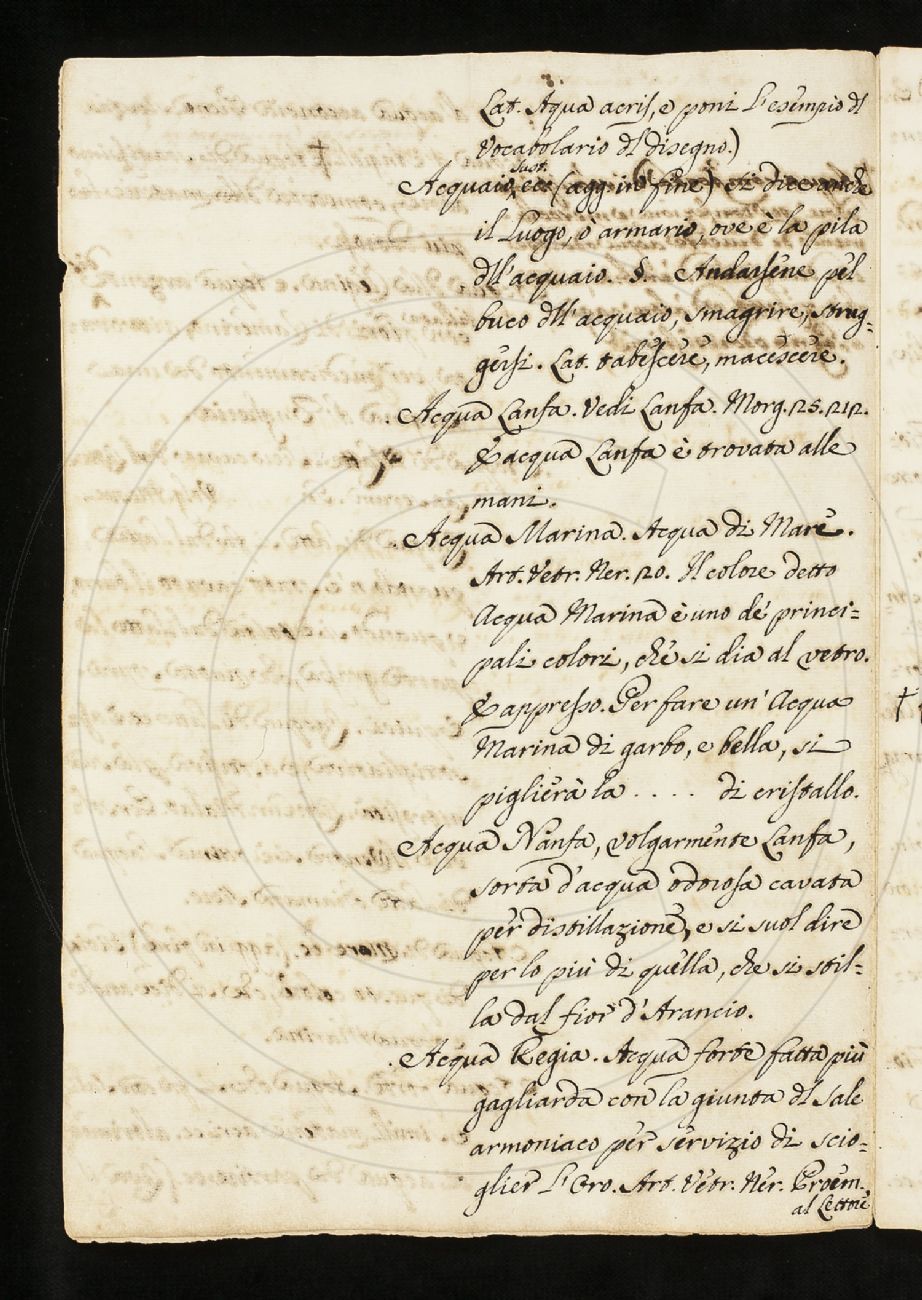 Lat. Aqua acris, e poni l'esempio dl
Vocabolario dl disegno.)
Acquaio, sust. ec. (agg. in fine) si dice anche
il luogo, ò armario, ove è la pila
dll'acquaio. §. Andarsene pel
buco dll'acquaio, smagrire, strug=
gersi. Lat. tabescere, macescere.
Acqua Lanfa. Vedi Lanfa. Morg. 25. 212.
E acqua Lanfa è trovata alle
mani.
Acqua Marina. Acqua di Mare.
Art. Vetr. Ner. 20. Il colore detto
Acqua Marina è uno de' princi=
pali colori, che si dia al vetro.
E appresso. Per fare un' Acqua
Marina di garbo, e bella, si
piglierà la .... di cristallo.
Acqua Nanfa, volgarmente Lanfa,
sorta d'acqua odorosa cavata
per distillazione, e si suol dire
per lo più di quella, che si stil=
la dal fior d'Arancio.
Acqua Regia. Acqua forte fatta più
gagliarda con la giunta dl sale
armoniaco per servizio di scio=
glier l'Oro. Art. Vetr. Ner. Proem.
al Lettore